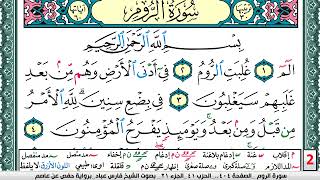 سُورَةُ الرُّومِ
بِسْمِ اللَّهِ الرَّحْمَٰنِ الرَّحِيمِ
الم ١ غُلِبَتِ الرُّومُ ٢ فِي أَدْنَى الْأَرْضِ وَهُم مِّن بَعْدِ
غَلَبِهِمْ سَيَغْلِبُونَ ٣ فِي بِضْعِ سِنِينَ ۗ لِلَّهِ الْأَمْرُ
مِن قَبْلُ وَمِن بَعْدُ ۚ وَيَوْمَئِذٍ يَفْرَحُ الْمُؤْمِنُونَ ٤
2
سورة الروم - الصفحة ٤٠٤ - الحزب ٤١ - الجزء ٢١ بصوت الشيخ فارس عباد برواية حفص عن عاصم